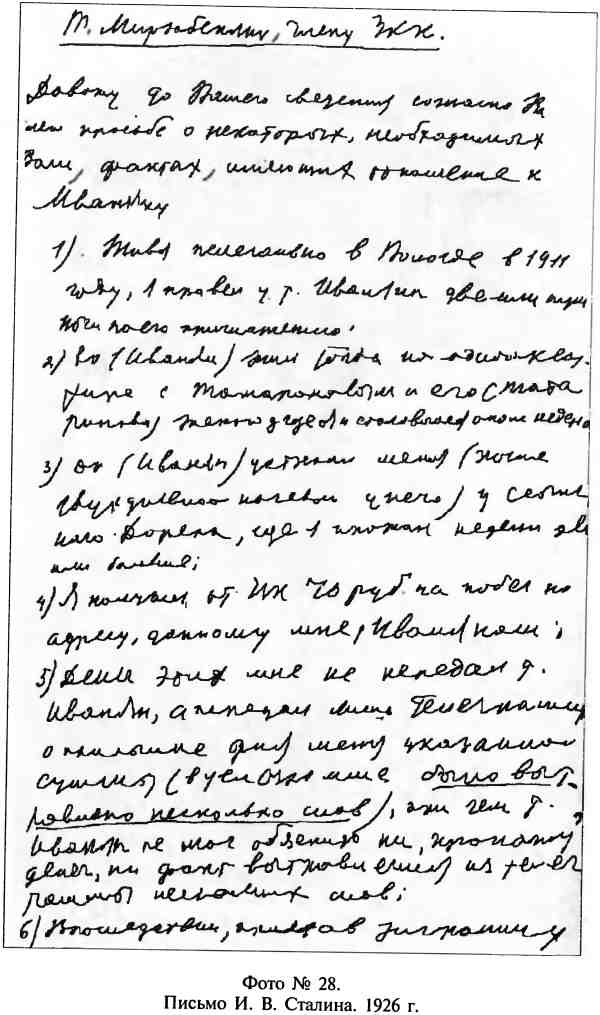 Т. Мирзабекяну, члену ЗКК.
Довожу до Вашего сведения согласно Ва
шей просьбе о некоторых, необходимых
Вам, фактах, имеющих отношение к
Иваняну
1). Живя нелегально в Вологде в 1911
году, я провел у т. Иваняна две или три
ночи по его приглашению.
2) Он (Иванян) жил тогда на одной квар
тире с Татариновым и его (Тата
ринова) женой, где я и столовался около недели
3) Он (Иванян) устроил меня (после
двухдневной ночевки у него) у
где я прожил недели две
или больше;
4) Я получил от ЦК 70 руб. на побег по
адресу, данному мне, Иваняном;
5) Денег этих мне не передал т.
Иванян, а передал лишь телеграмму
о посылке для меня указанной
суммы (в телеграмме было выт
равлено несколько слов), при чем т.
Иванян не мог объяснить ни "пропажу"
денег, ни факт вытравления из телег
раммы нескольких слов;
6) Впоследствии, приехав заграницу
Фото № 28.
Письмо И. В. Сталина. 1926 г.